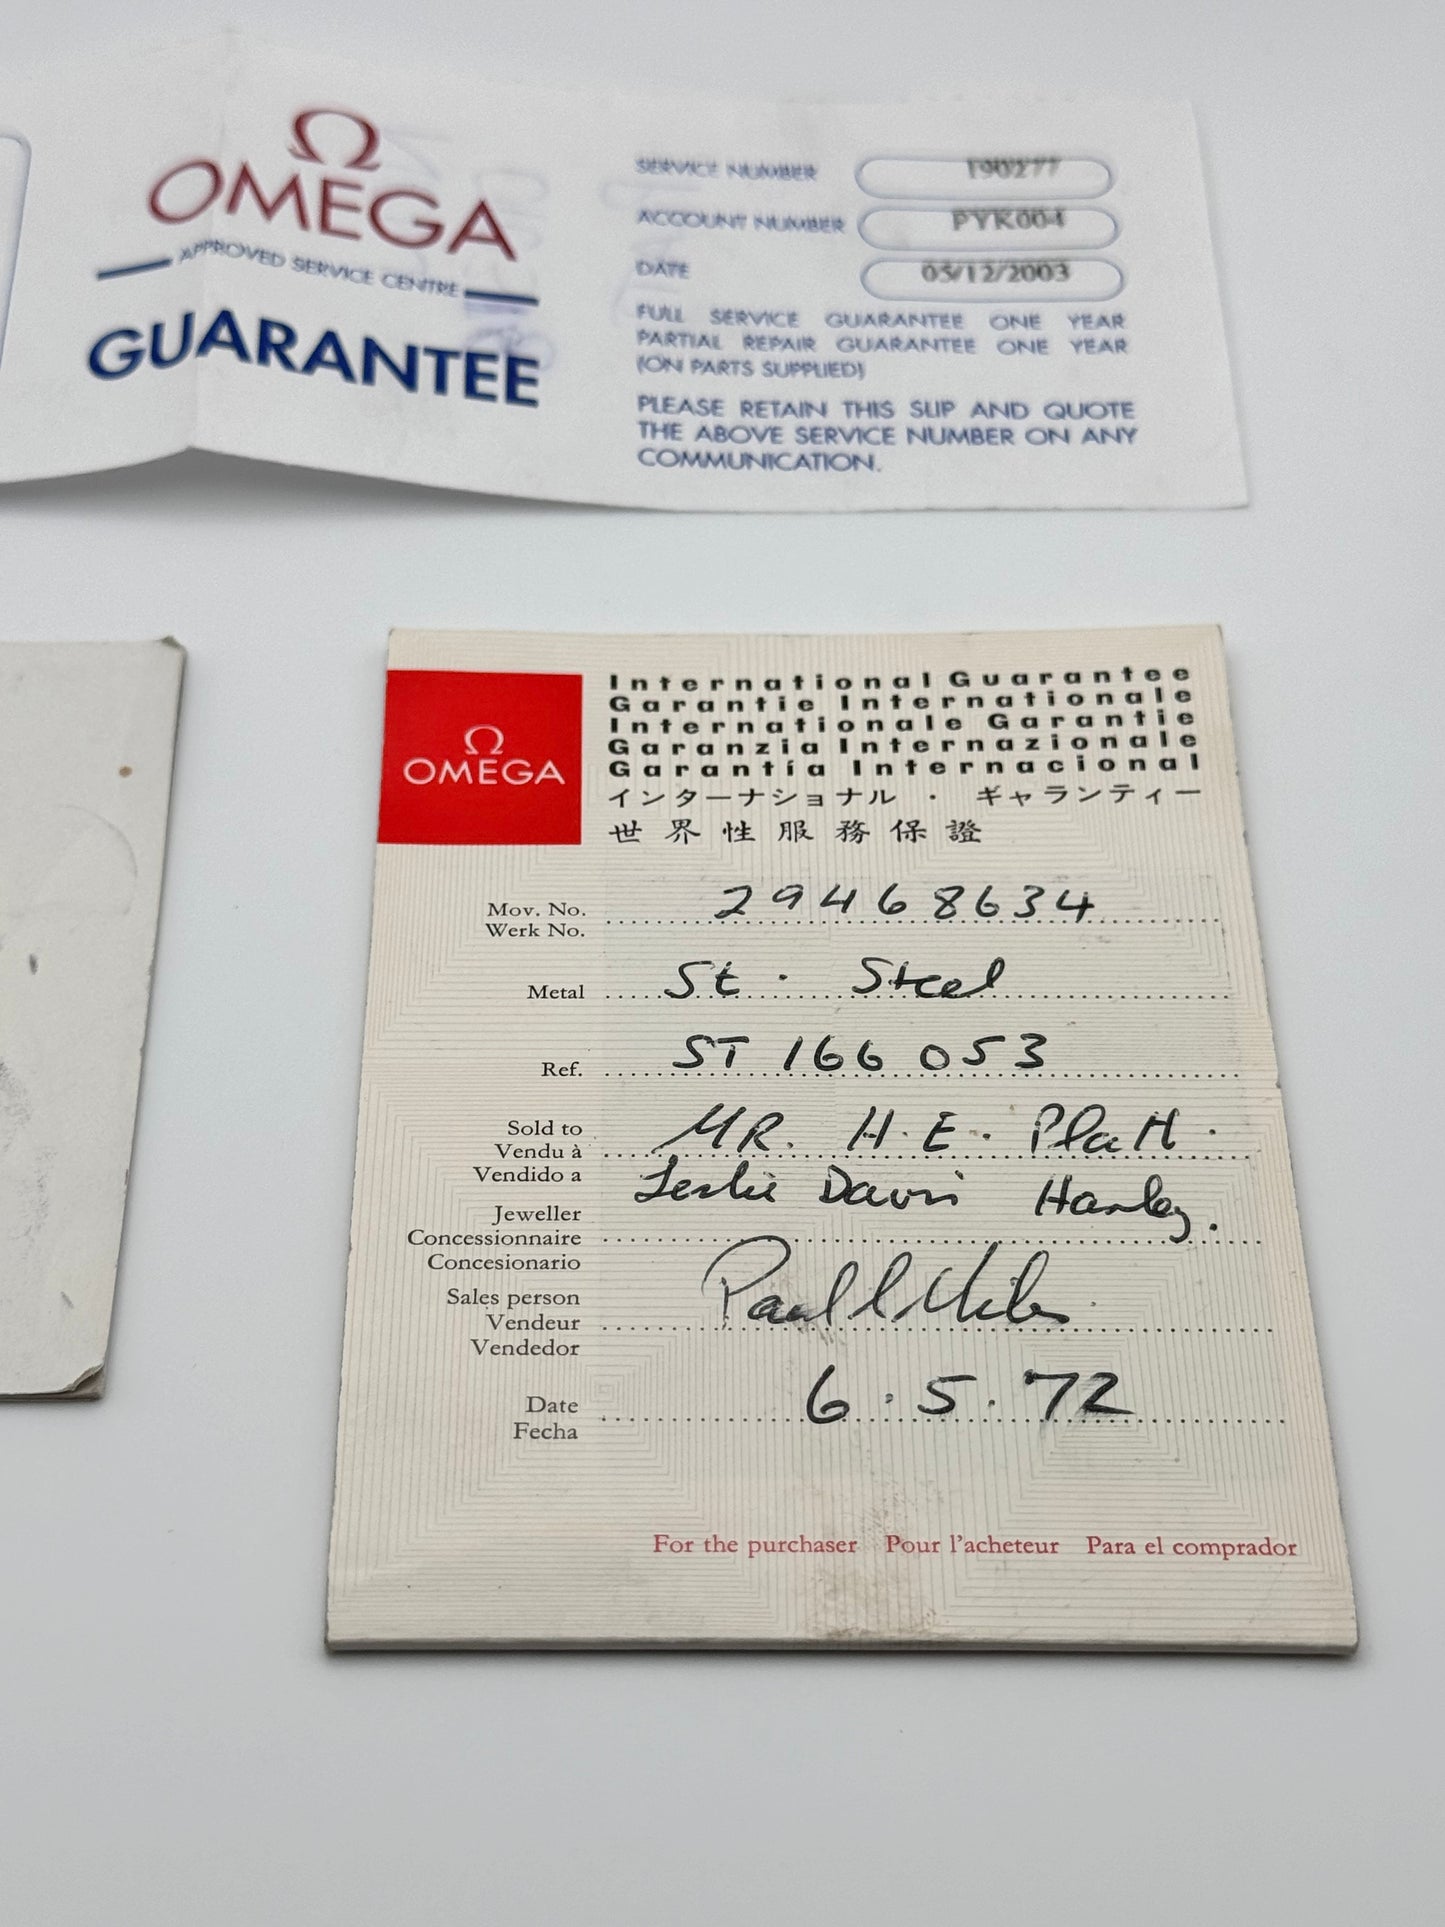 Ω
OMEGA
APPROVED SERVICE CENTRE
GUARANTEE
SERVICE NUMBER 190277
ACCOUNT NUMBER PYK004
DATE 05/12/2003
FULL SERVICE GUARANTEE ONE YEAR
PARTIAL REPAIR GUARANTEE ONE YEAR
(ON PARTS SUPPLIED)
PLEASE RETAIN THIS SLIP AND QUOTE
THE ABOVE SERVICE NUMBER ON ANY
COMMUNICATION.
Ω
OMEGA
International Guarantee
Garantie Internationale
Internationale Garantie
Garanzia Internazionale
Garantía Internacional
インターナショナル・ギャランティー
世界性服務保證
Mov. No. 29468634
Werk No.
Metal St. Steel
Ref. ST 166 053
Sold to MR. H.E. Platt.
Vendu à
Vendido a Leslie Davis Hanley.
Jeweller
Concessionnaire
Concesionario
Sales person Paul
Vendeur
Vendedor
Date 6.5.72
Fecha
For the purchaser Pour l'acheteur Para el comprador